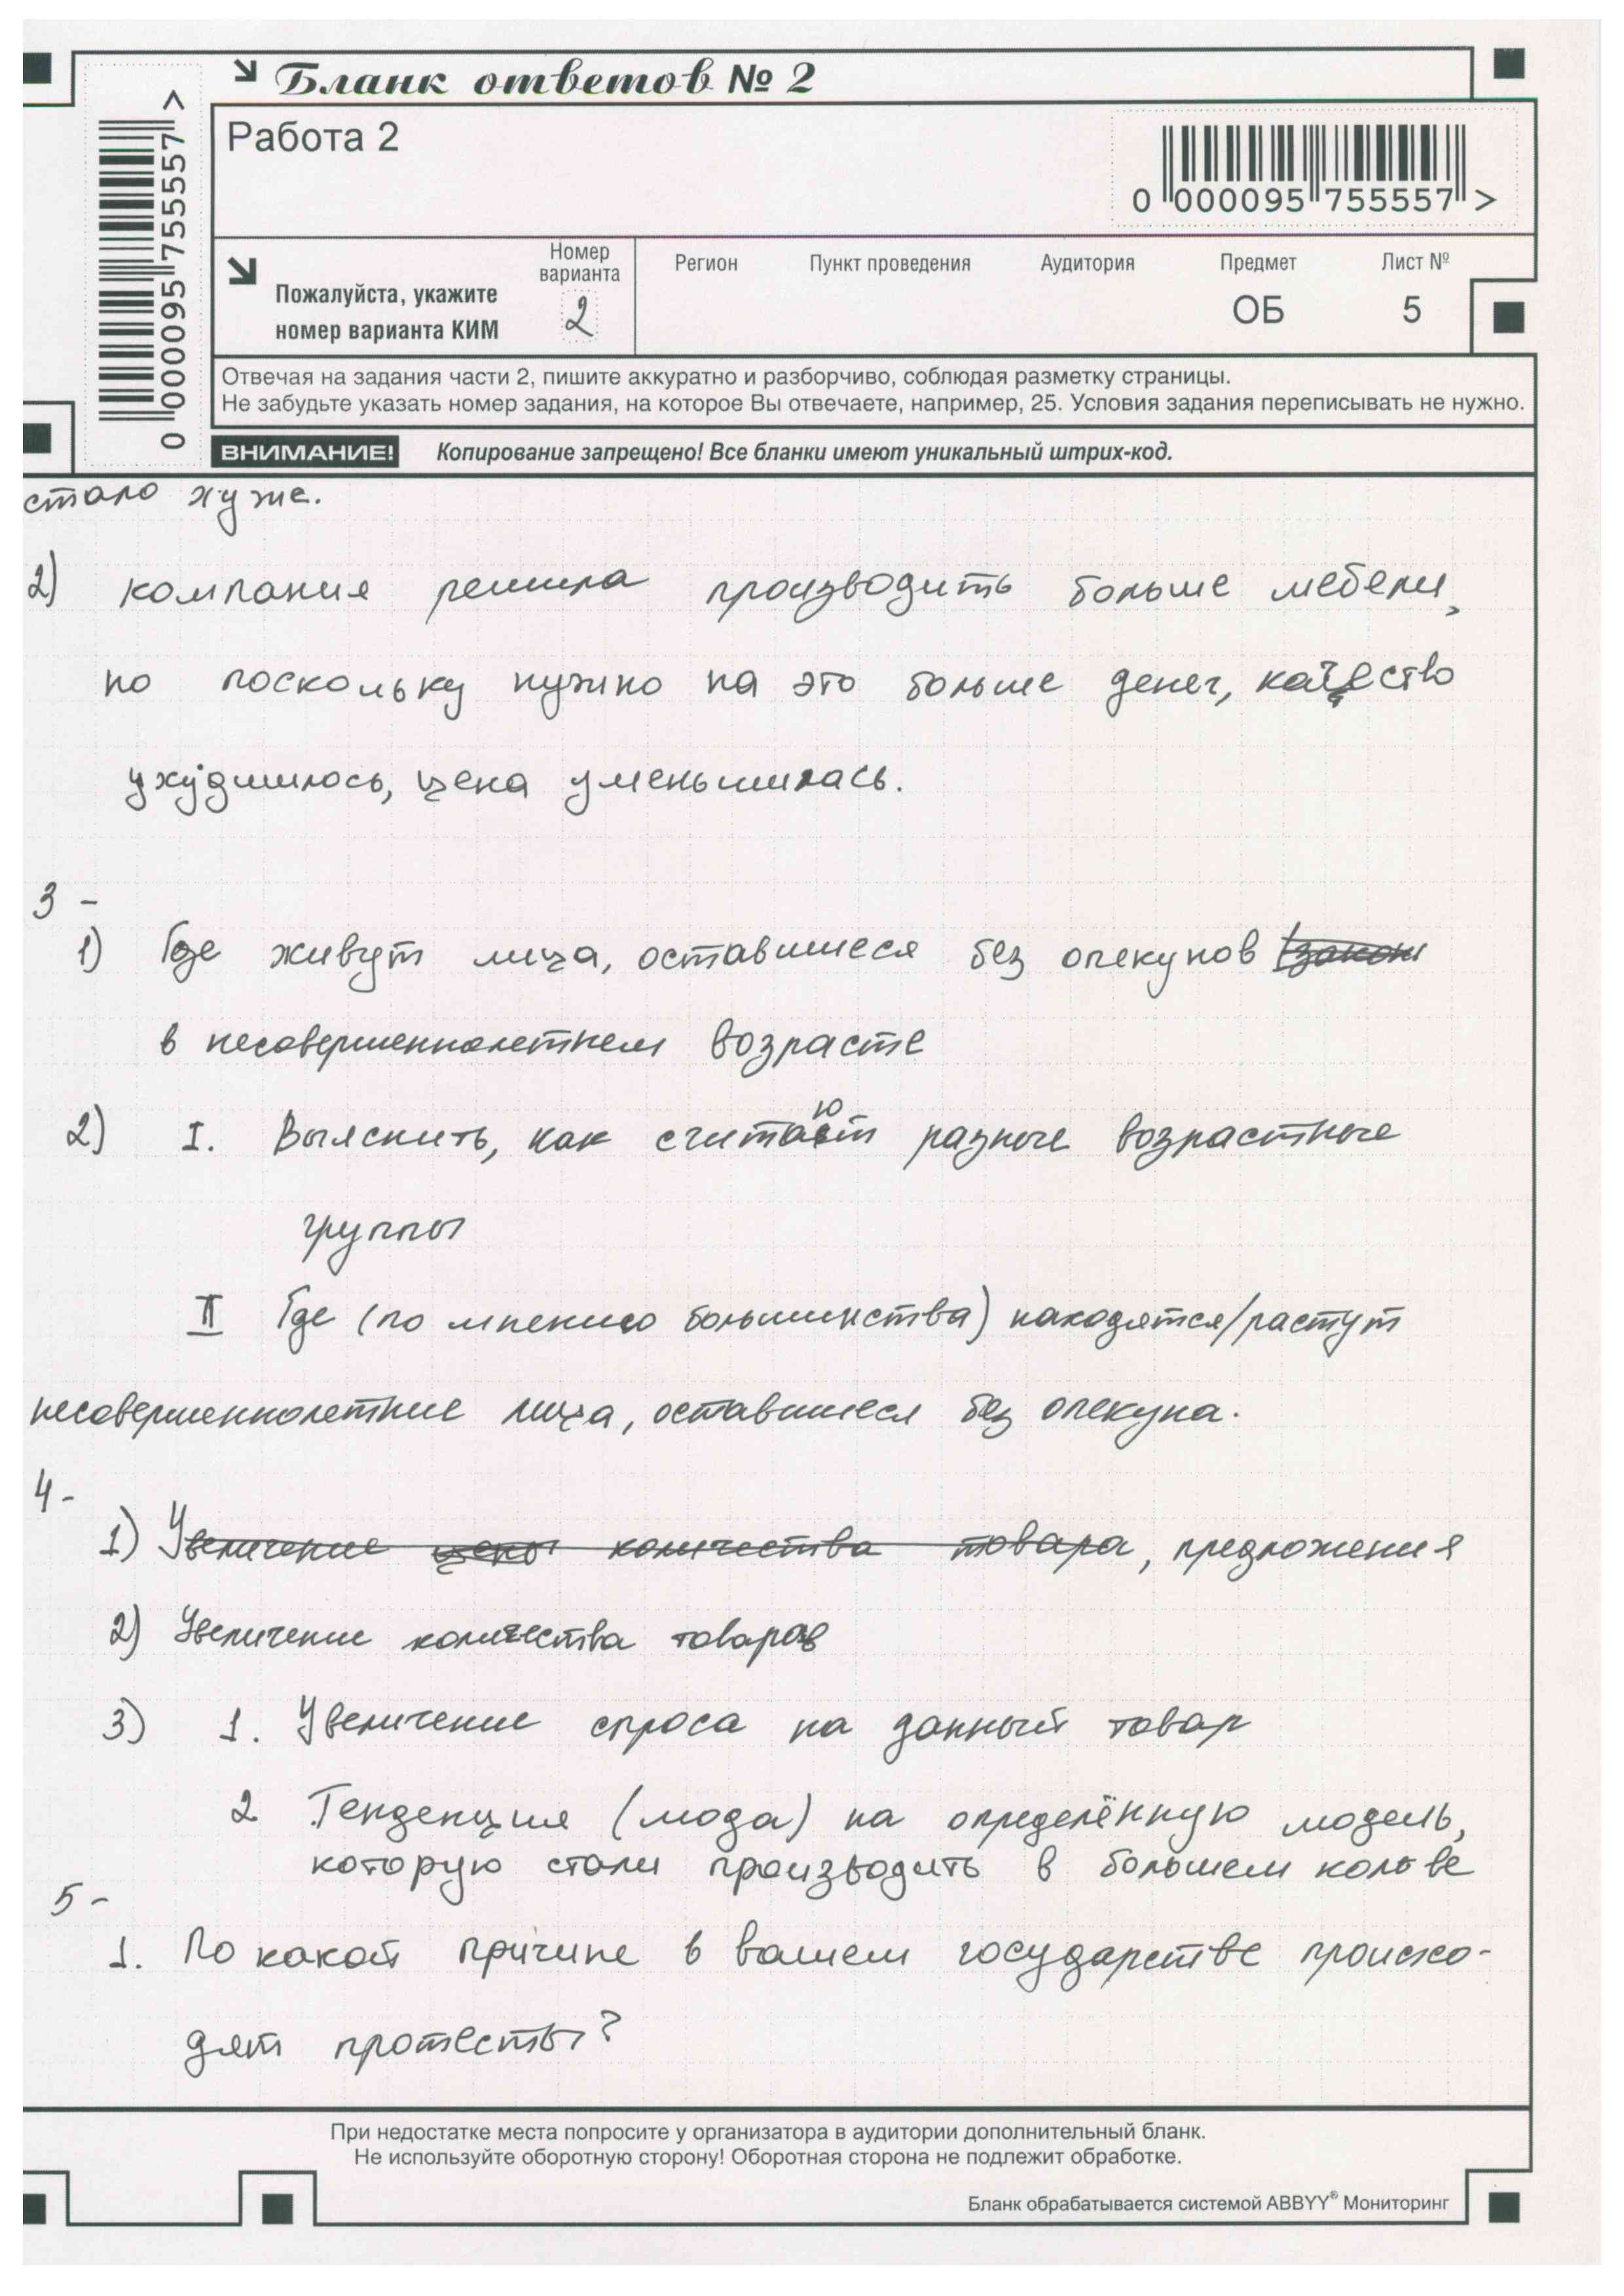 Бланк ответов № 2
Работа 2
0 000095 755557 >
0 000095 755557 >
Пожалуйста, укажите
номер варианта КИМ
Номер
варианта
2
Регион
Пункт проведения
Аудитория
Предмет
ОБ
Лист №
5
Отвечая на задания части 2, пишите аккуратно и разборчиво, соблюдая разметку страницы.
Не забудьте указать номер задания, на которое Вы отвечаете, например, 25. Условия задания переписывать не нужно.
ВНИМАНИЕ! Копирование запрещено! Все бланки имеют уникальный штрих-код.
стало хуже.
2) компания решила производить больше мебели,
но поскольку нужно на это больше денег, качество
ухудшилось, цена уменьшилась.
3 -
1) Где живут лица, оставшиеся без опекунов
в несовершеннолетнем возрасте
2) I. Выяснить, как считают разные возрастные
группы
II Где (по мнению большинства) находятся/растут
несовершеннолетние лица, оставшиеся без опекуна.
4 -
1) Увеличение цены количества товара, предложения
2) Увеличение количества товаров
3) 1. Увеличение спроса на данный товар
2 Тенденция (мода) на определённую модель,
которую стали производить в большем кол-ве
5 -
1. По какой причине в вашем государстве происхо-
дят протесты?
При недостатке места попросите у организатора в аудитории дополнительный бланк.
Не используйте оборотную сторону! Оборотная сторона не подлежит обработке.
Бланк обрабатывается системой ABBYY® Мониторинг